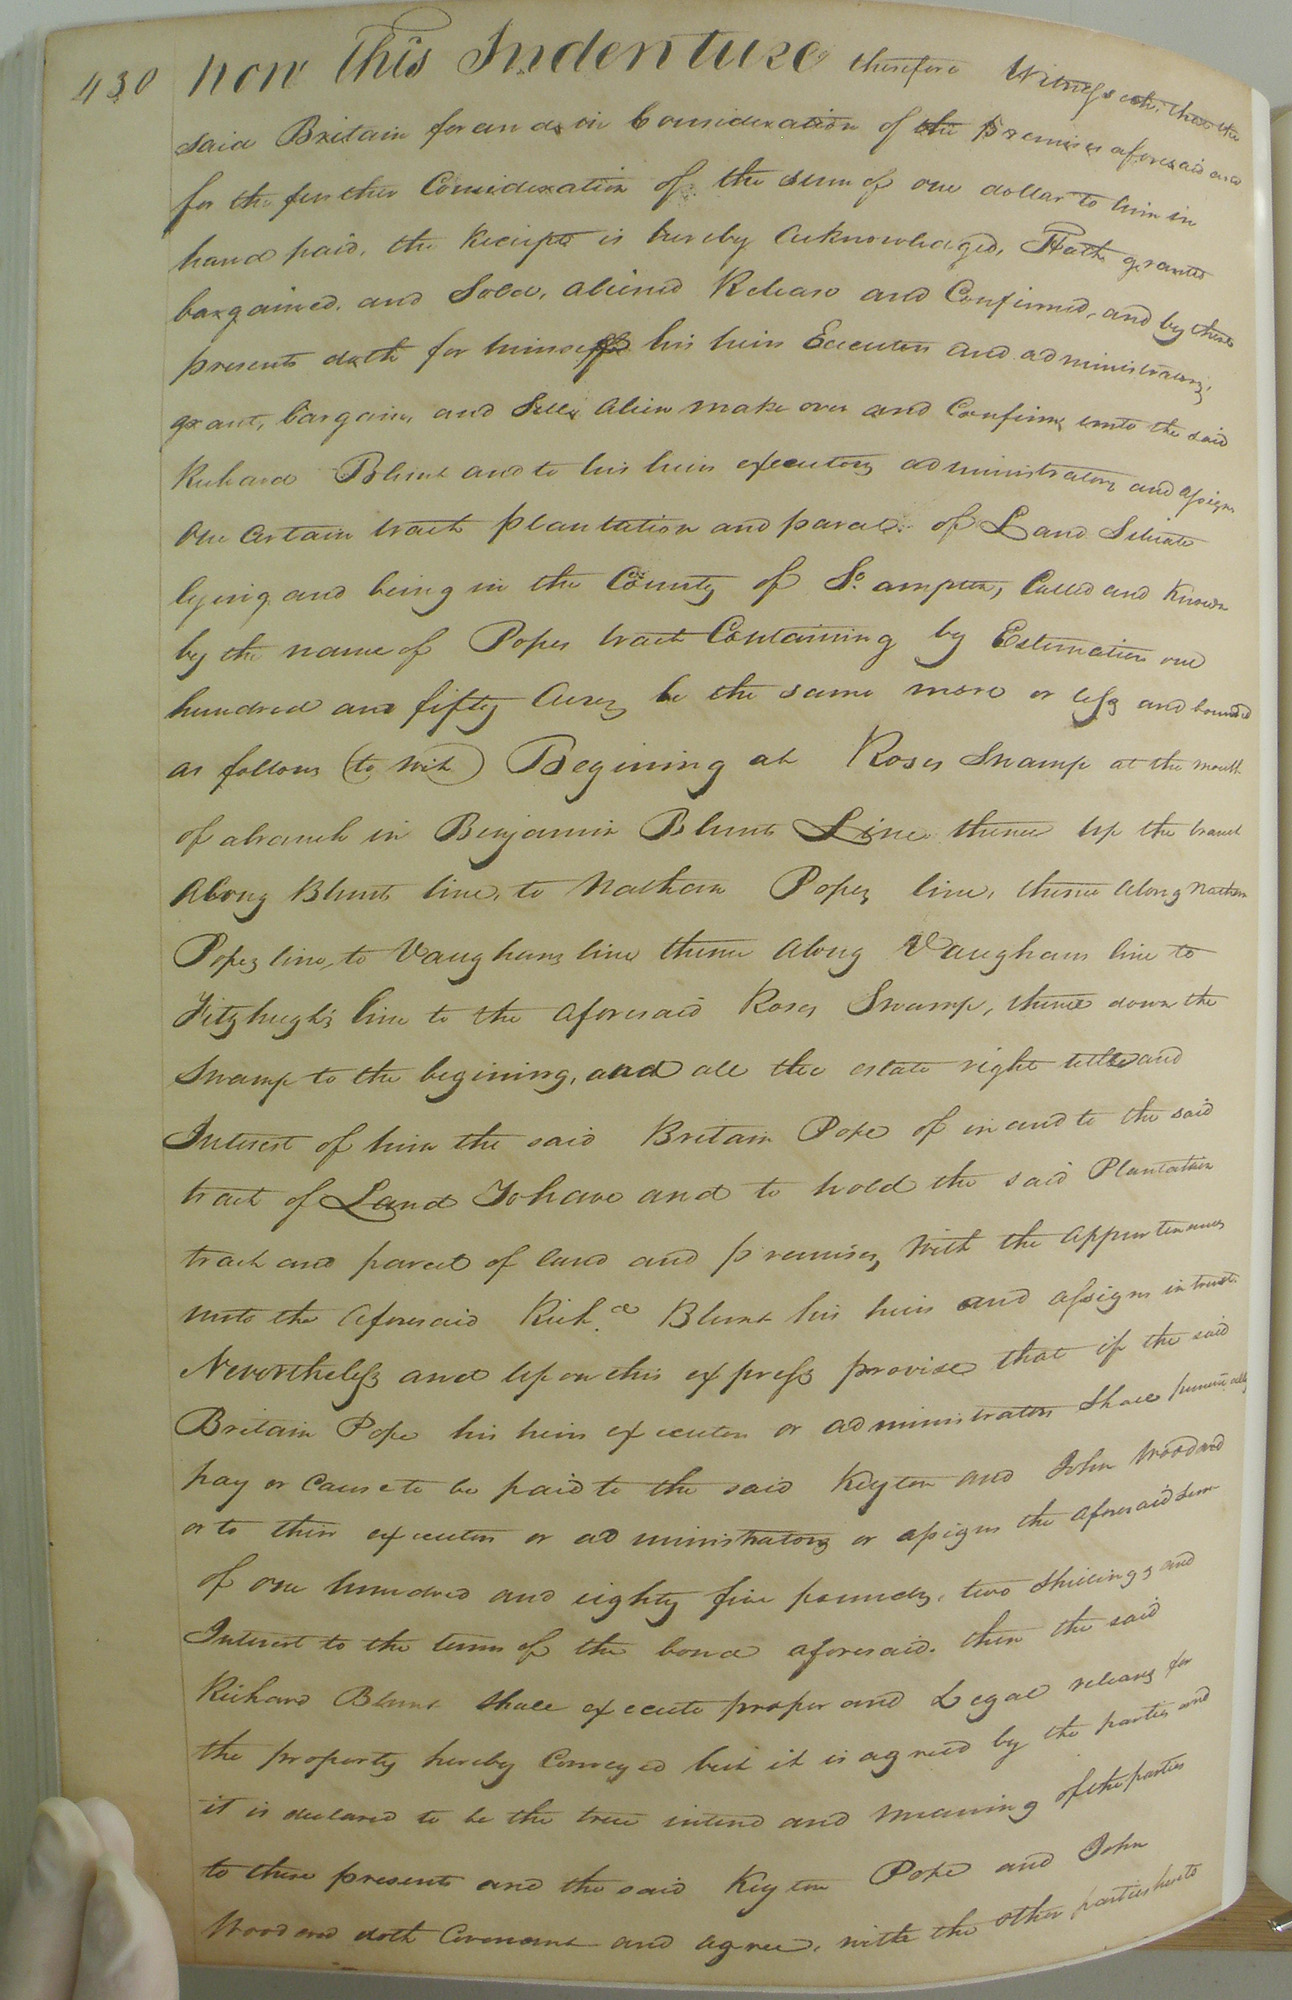 430 Now This Indenture therefore Witnesseth that the
said Britain for and in Consideration of the Premises aforesaid and
for the further Consideration of the sum of one dollar to him in
hand paid, the Reciept is hereby acknowledged, Hath granted
bargained, and Sold, aliened Release and Confirmed, and by these
presents doth for himself his heirs Executors and administrators,
grant, bargain, and Sell, alien make over and Confirm unto the said
Richard Blunt and to his heirs executors administrators and assigns
One Certain tract plantation and parcel of Land Situate
lying and being in the County of So. ampton, Called and Known
by the name of Popes tract Containing by Estimation one
hundred and fifty Acres be the same more or less and bounded
as follows (to wit) Begining at Roses Swamp at the mouth
of a branch in Benjamin Blunts Line thence up the branch
Along Blunts line, to Nathan Popes line, thence along Nathan
Popes line, to Vaughans line thence along Vaughans line to
Fitzhugh's line to the aforesaid Roses Swamp, thence down the
Swamp to the begining, and all the estate right title and
Interest of him the said Britain Pope of in and to the said
tract of Land To have and to hold the said Plantation
tract and parcel of land and premises, with the appurtenances
unto the aforesaid Richd. Blunt his heirs and assigns in trust
Nevertheless and upon this express provise that if the said
Britain Pope his heirs executors or administrators Shall
pay or Cause to be paid to the said Keyton and John Woodard
or to their executors or administrators or assigns the aforesaid sum
of one hundred and eighty five pounds, two shillings and
Interest to the terms of the bond aforesaid. then the said
Richard Blunt shall execute proper and Legal releases for
the property hereby Conveyed but it is agreed by the parties and
it is declared to be the true intend and meaning of the parties
to these presents and the said Keyton Pope and John
Woodard doth Covenant and agree, with the other parties hereto